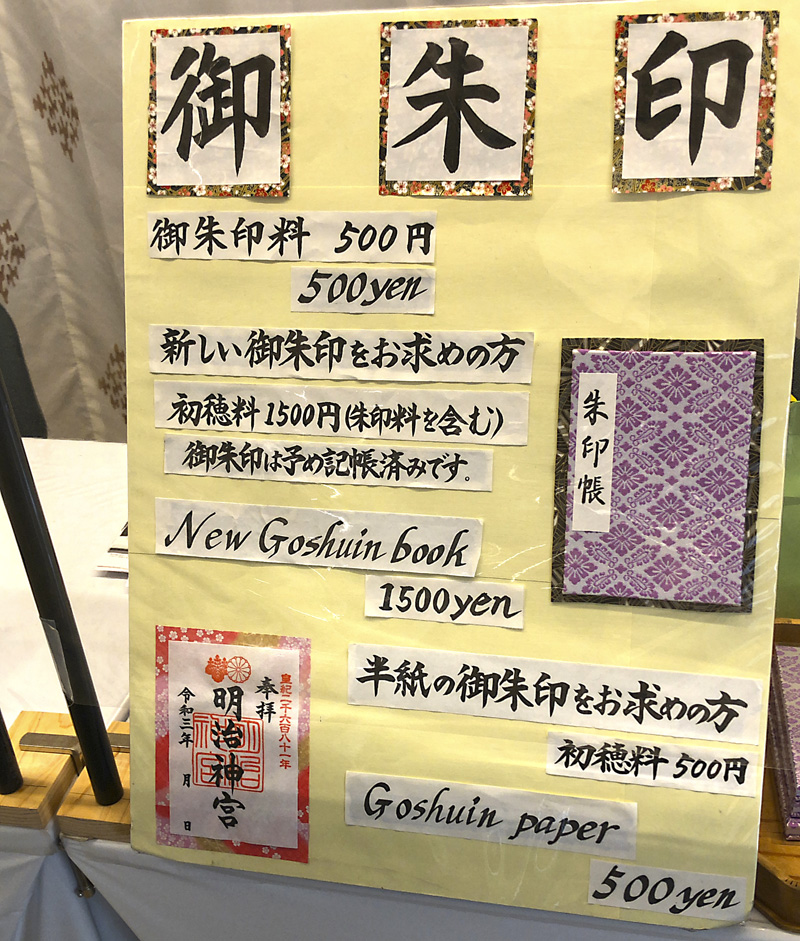 御朱印
御朱印料 500円
500yen
新しい御朱印をお求めの方
初穂料1500円(朱印料を含む)
御朱印は予め記帳済みです。
New Goshuin book
1500yen
朱印帳
半紙の御朱印をお求めの方
初穂料500円
Goshuin paper
500yen
皇紀二千六百八十一年
奉拝
明治神宮
令和三年 月 日